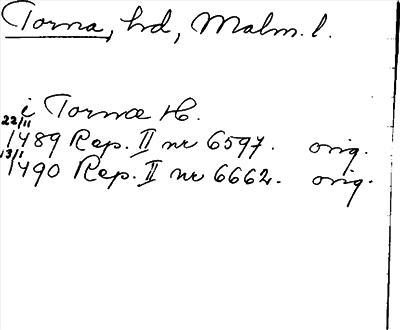 Torna, hd, Malm. l.
i Tornæ H.
22/11
1489 Rep. II nr 6597. orig.
13/1
1490 Rep. II nr 6662. orig.